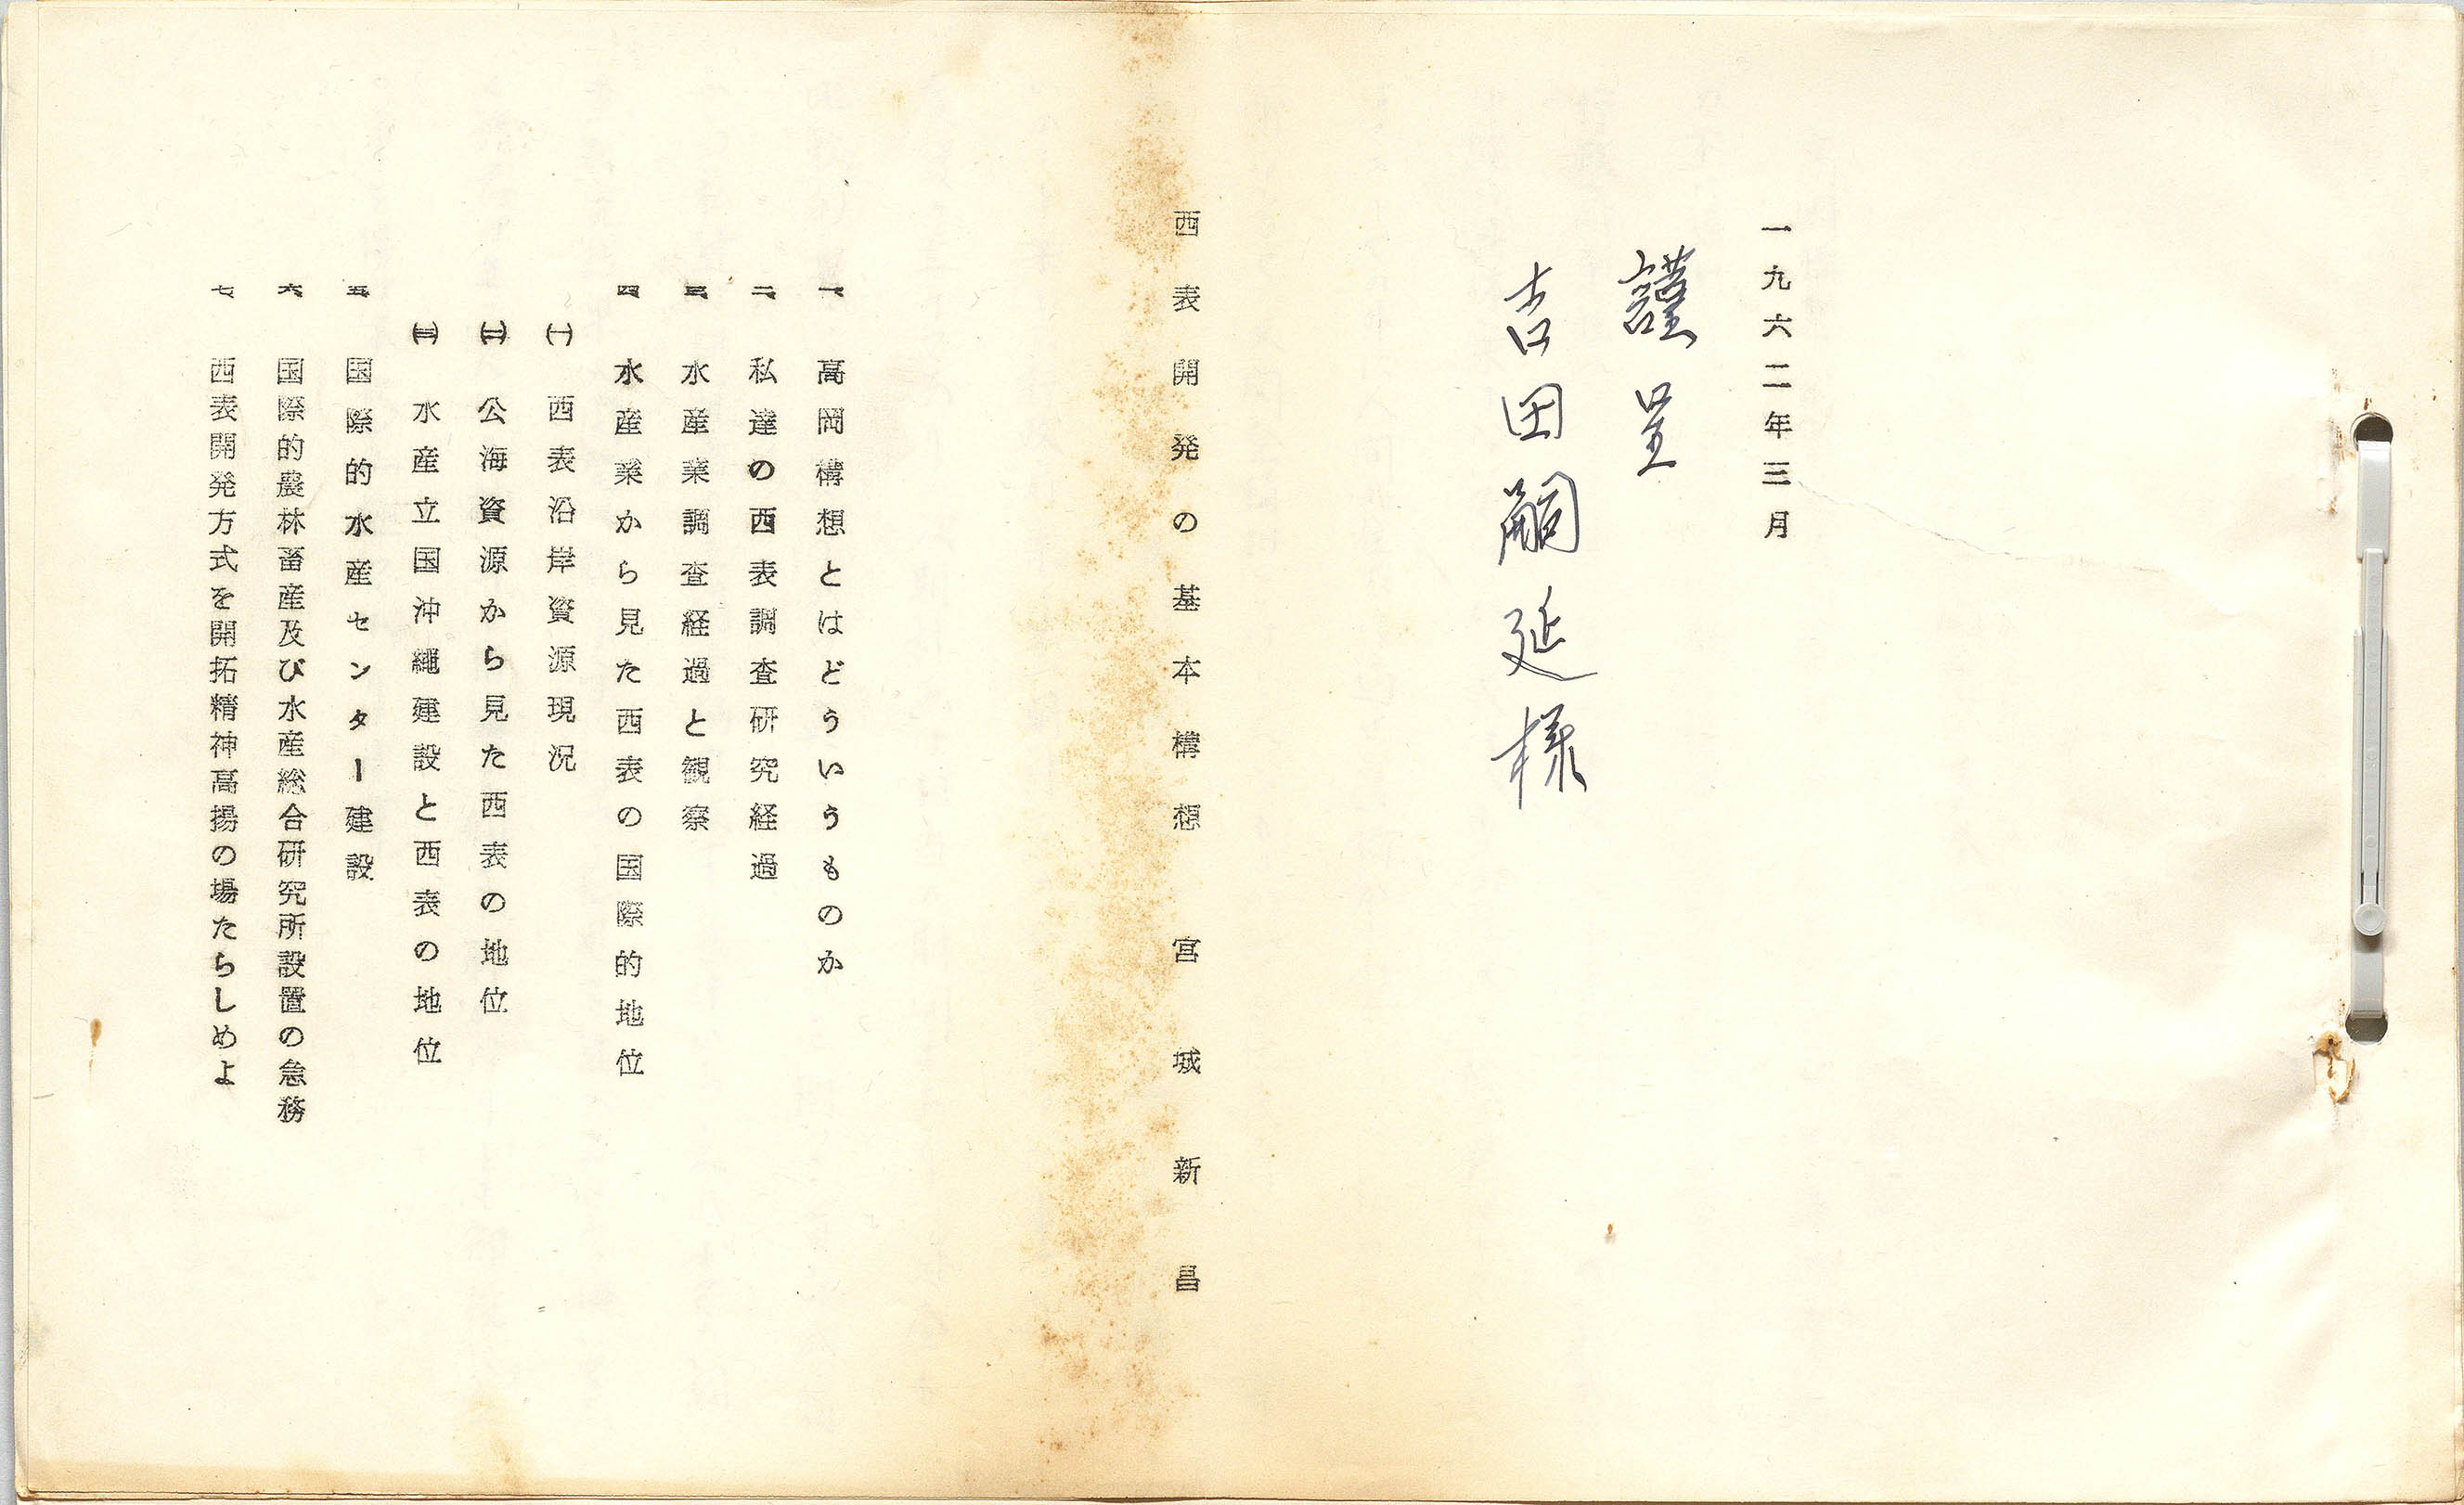 一九六二年三月
謹呈
吉田嗣延様
西表開発の基本構想 宮城新昌
一、高岡構想とはどういうものか
二、私達の西表調査研究経過
三、水産業調査経過と観察
四、水産業から見た西表の国際的地位
(一) 西表沿岸資源現況
(二) 公海資源から見た西表の地位
(三) 水産立国沖縄建設と西表の地位
五、国際的水産センター建設
六、国際的農林畜産及び水産総合研究所設置の急務
七、西表開発方式を開拓精神高揚の場たらしめよ